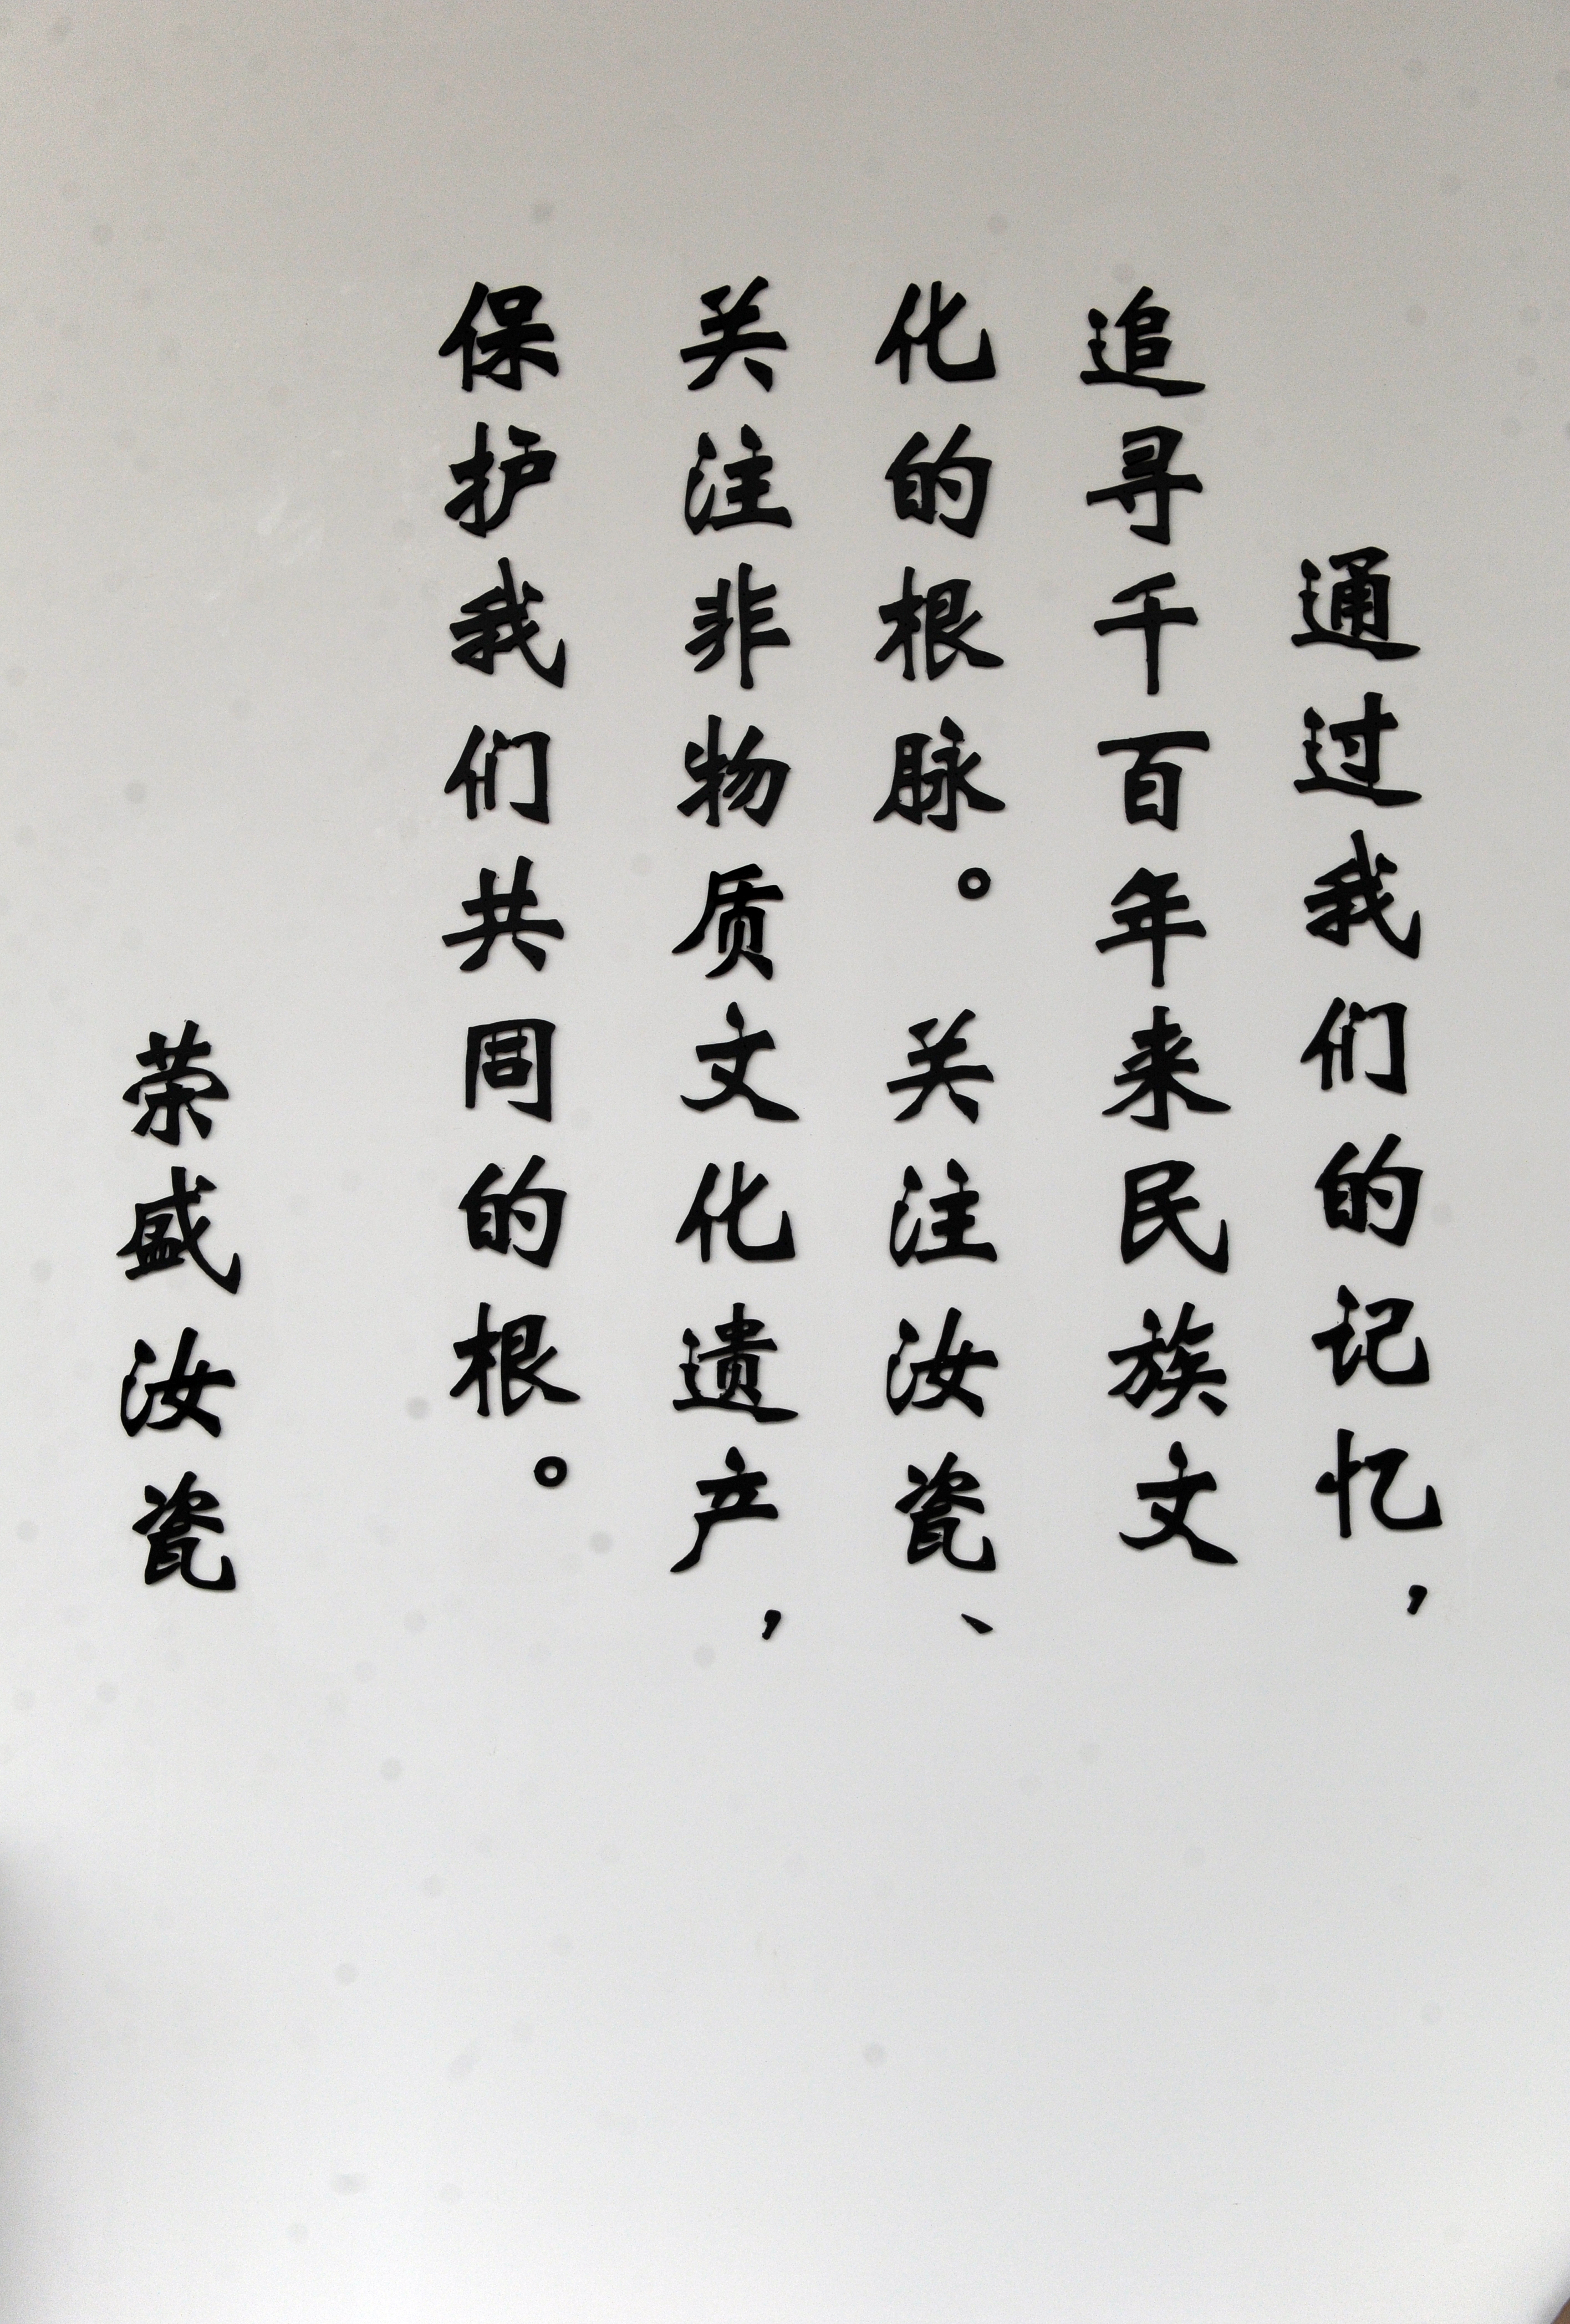 通过我们的记忆，
追寻千百年来民族文
化的根脉。关注汝瓷、
关注非物质文化遗产，
保护我们共同的根。
荣盛汝瓷